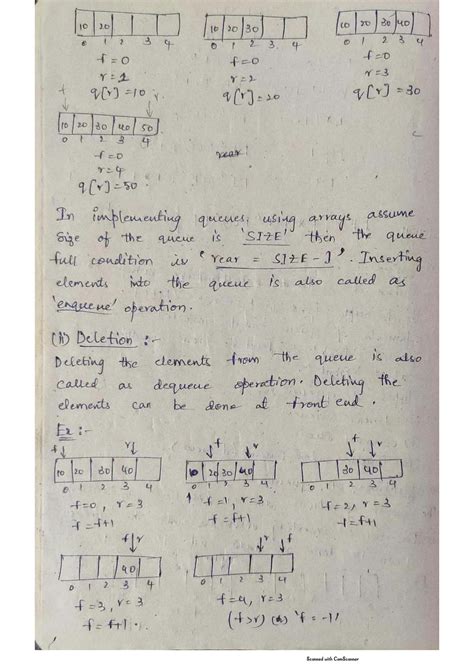 10 20
10 20 30
10 20 30 40
0 1 2 3 4
0 1 2 3 4
0 1 2 3 4
f=0
f=0
f=0
r=1
r=2
r=3
q[r]=10
q[r]=20
q[r]=30
f r
10 20 30 40 50
0 1 2 3 4
f=0
rear
r=4
q[r]=50
In implementing queues, using arrays assume
Size of the queue is 'SIZE' then the queue
full condition is 'rear = SIZE-1'. Inserting
elements into the queue is also called as
'enqueue' operation.
(ii) Deletion :-
Deleting the elements from the queue is also
called as dequeue operation. Deleting the
elements can be done at front end.
Ex :-
f r
f r
f r
10 20 30 40
10 20 30 40
30 40
0 1 2 3 4
0 1 2 3 4
0 1 2 3 4
f=0, r=3
f=1, r=3
f=2, r=3
f=f+1
f=f+1
f=f+1
f r
r f
40
0 1 2 3 4
0 1 2 3 4
f=3, r=3
f=4, r=3
f=f+1.
(f>r) (or) 'f=-1'
Scanned with CamScanner